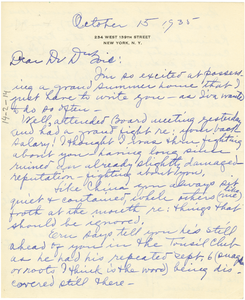 October 15 1935
234 WEST 139TH STREET
NEW YORK, N. Y.
Dear Dr Du Bois:
I'm so excited at possess
ing a grand summer home that I
just have to write you - as I've wanted
to do so often -
Well, attended Board meeting yesterday
and had a grand fight re: your back
salary! I thought I was then fighting
about you having long since
ruined my already slightly damaged
reputation - fighting about you,
Like China you always sit
quiet & contained, while others (me)
froth at the mouth re: things that
should be ignored,
says tell you he's still
ahead of you in the Tonsil Club
as he had his repeated Sept 6
or roots I think is the word, being dis-
covered still there -
14-2-14